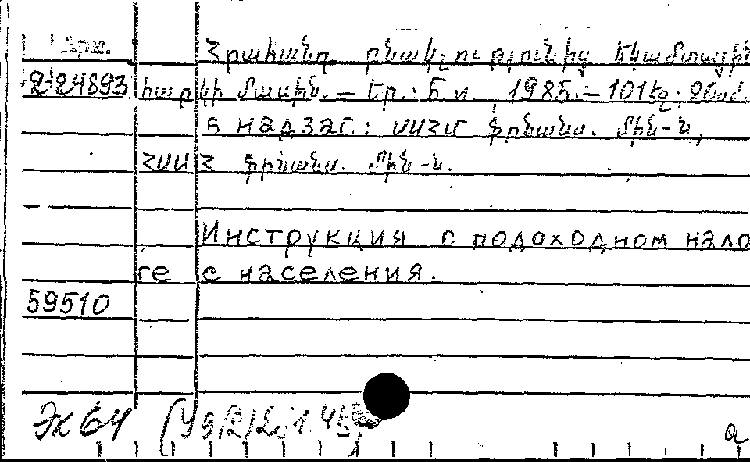 Հրահանգ բնակչությունից եկամտային
2-24893 հարկի մասին. — Եր.: Б. и., 1985. — 101 էջ;
В надзаг.: ՍՍՀՄ ֆինանս. մին-ն,
ՀՍՍՀ ֆինանս. մին-ն.
Инструкция о подоходном нало
ге с населения.
59510
Эк 64
a